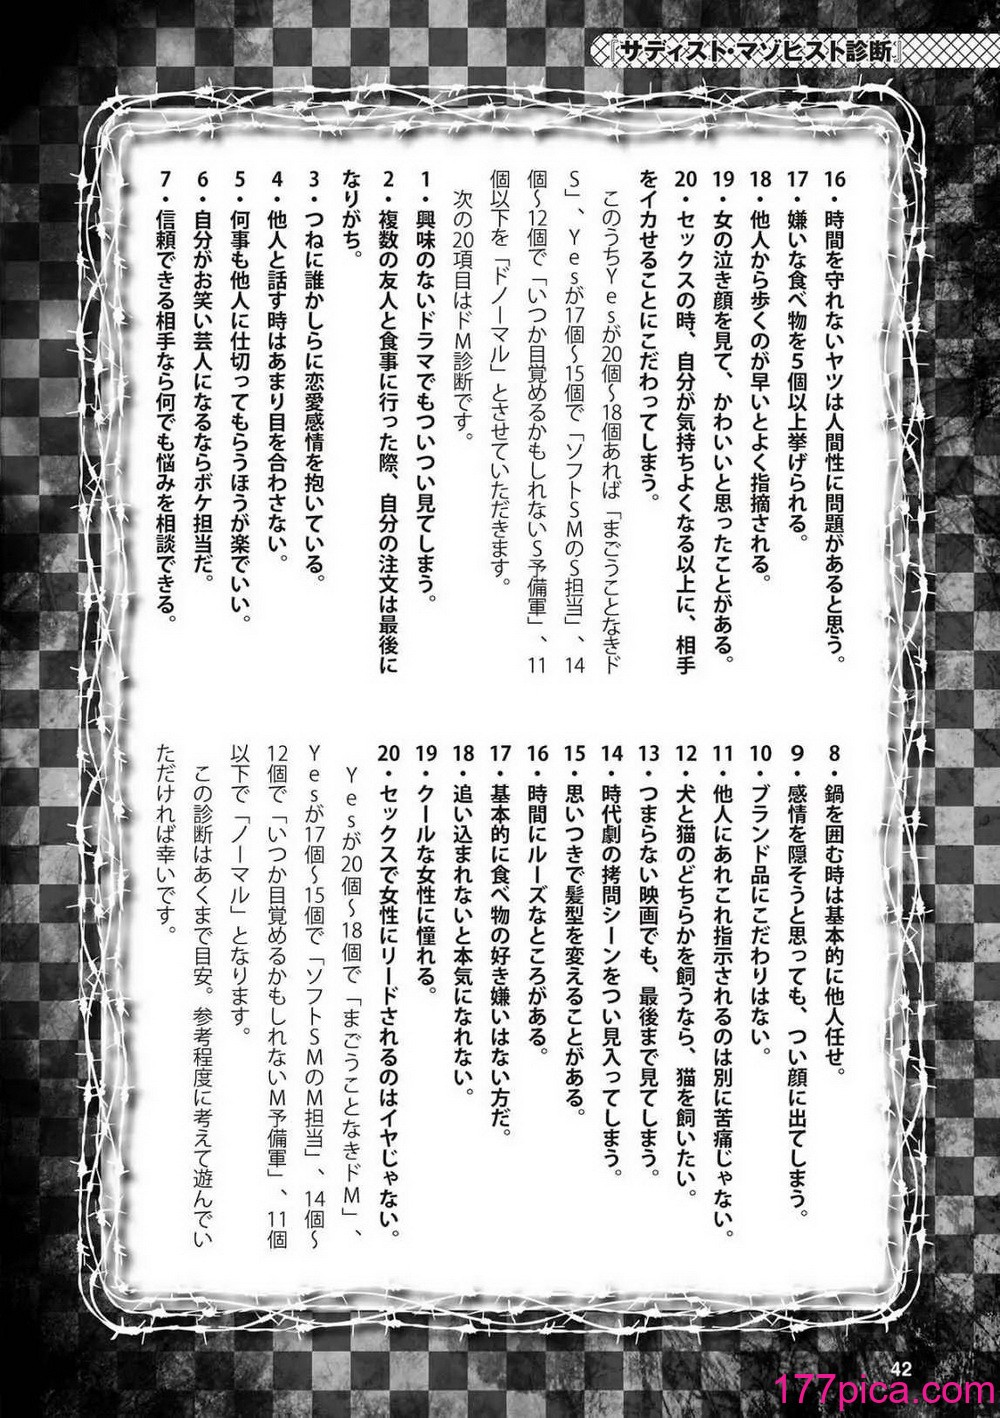 『サディスト・マゾヒスト診断』
16・時間を守れないヤツは人間性に問題があると思う。
17・嫌いな食べ物を5個以上挙げられる。
18・他人から歩くのが早いとよく指摘される。
19・女の泣き顔を見て、かわいいと思ったことがある。
20・セックスの時、自分が気持ちよくなる以上に、相手
をイカせることにこだわってしまう。
このうちYesが20個〜18個あれば「まごうことなきド
S」、Yesが17個〜15個で「ソフトSMのS担当」、14
個〜12個で「いつか目覚めるかもしれないS予備軍」、11
個以下を「ドノーマル」とさせていただきます。
次の20項目はドM診断です。
1・興味のないドラマでもついつい見てしまう。
2・複数の友人と食事に行った際、自分の注文は最後に
なりがち。
3・つねに誰かしらに恋愛感情を抱いている。
4・他人と話す時はあまり目を合わさない。
5・何事も他人に仕切ってもらうほうが楽でいい。
6・自分がお笑い芸人になるならボケ担当だ。
7・信頼できる相手なら何でも悩みを相談できる。
8・鍋を囲む時は基本的に他人任せ。
9・感情を隠そうと思っても、つい顔に出てしまう。
10・ブランド品にこだわりはない。
11・他人にあれこれ指示されるのは別に苦痛じゃない。
12・犬と猫のどちらかを飼うなら、猫を飼いたい。
13・つまらない映画でも、最後まで見てしまう。
14・時代劇の拷問シーンをつい見入ってしまう。
15・思いつきで髪型を変えることがある。
16・時間にルーズなところがある。
17・基本的に食べ物の好き嫌いはない方だ。
18・追い込まれないと本気になれない。
19・クールな女性に憧れる。
20・セックスで女性にリードされるのはイヤじゃない。
Yesが20個〜18個で「まごうことなきドM」、
Yesが17個〜15個で「ソフトSMのM担当」、14個〜
12個で「いつか目覚めるかもしれないM予備軍」、11個
以下で「ノーマル」となります。
この診断はあくまで目安。参考程度に考えて遊んでい
ただければ幸いです。
42
177pica.com